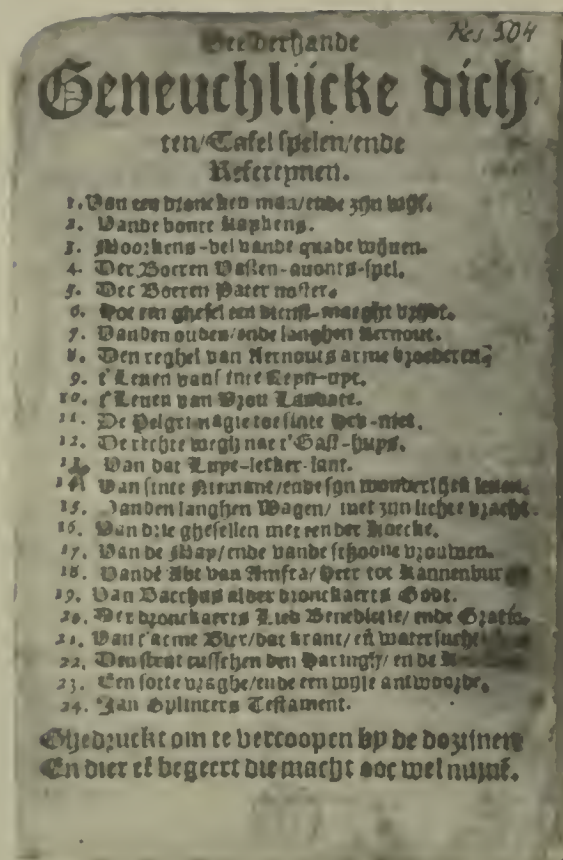 Res 504
Veelderhande
Geneuchlijcke dich
ten/Tafel spelen/ende
Refereynen.
1. Van een droncken man/ende zijn wijf.
2. Vande bonte Kapkens.
3. Moorkens-vel vande quade wijven.
4. Der Boeren Vasten-auonts-spel.
5. Der Boeren Pater noster.
6. Hoe een ghesel een dienst-maeght vrijdt.
7. Vanden ouden/ende langhen Aernout.
8. Den reghel van Aernouts arme broederen
9. t'Leuen van sinte Reyn-uyt.
10. t'Leuen van Vrou Laudate.
11. De Pelgrimagie toe sinte Heb-niet.
12. De rechte wegh nae t'Gast-huys.
13. Van dat Luye-lecker-lant.
14. Van sinte Niemant/ende sijn wonderlijck leuen.
15. Vanden langhen Wagen/ met zijn lichte vracht.
16. Van drie ghesellen met een der Koecke.
17. Van de May/ende vande schoone vrouwen.
18. Vandē Abt van Amstra/ Heer tot Kannenbur
19. Van Bacchus alder dronckaerts Godt.
20. Der dronckaerts Lied Benedictie/ ende Gratie.
21. Van t'arme Bier/dat krant/ eñ water sucht
22. Den strijt tusschen den Haringh/ en de
23. Een sotte vraghe/ende een wijse antwoorde.
24. Jan Splinters Testament.
Ghedruckt om te vercoopen by de dozijnen
En dier eē begeert die macht ooc wel nuynē.